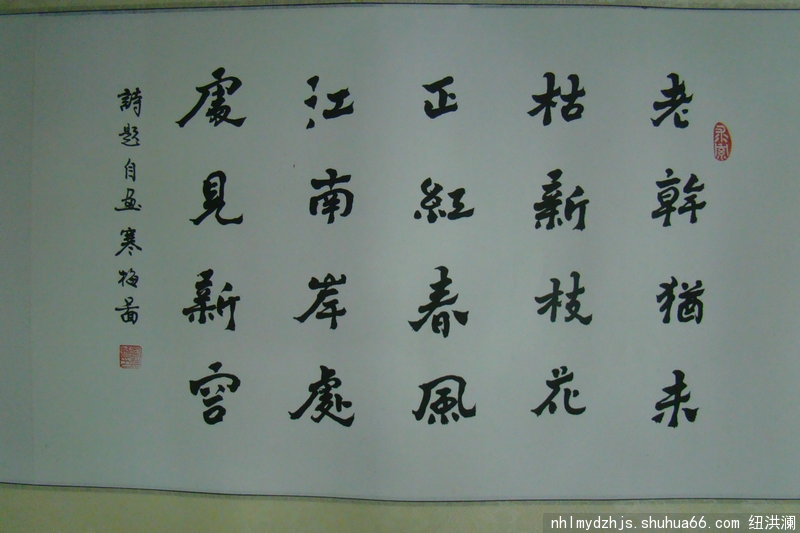 老幹猶未
枯新枝花
正紅春風
江南岸處
處見新容
詩題自畫寒梅圖
nhlmydzhjs.shuhua66.com 纽洪澜